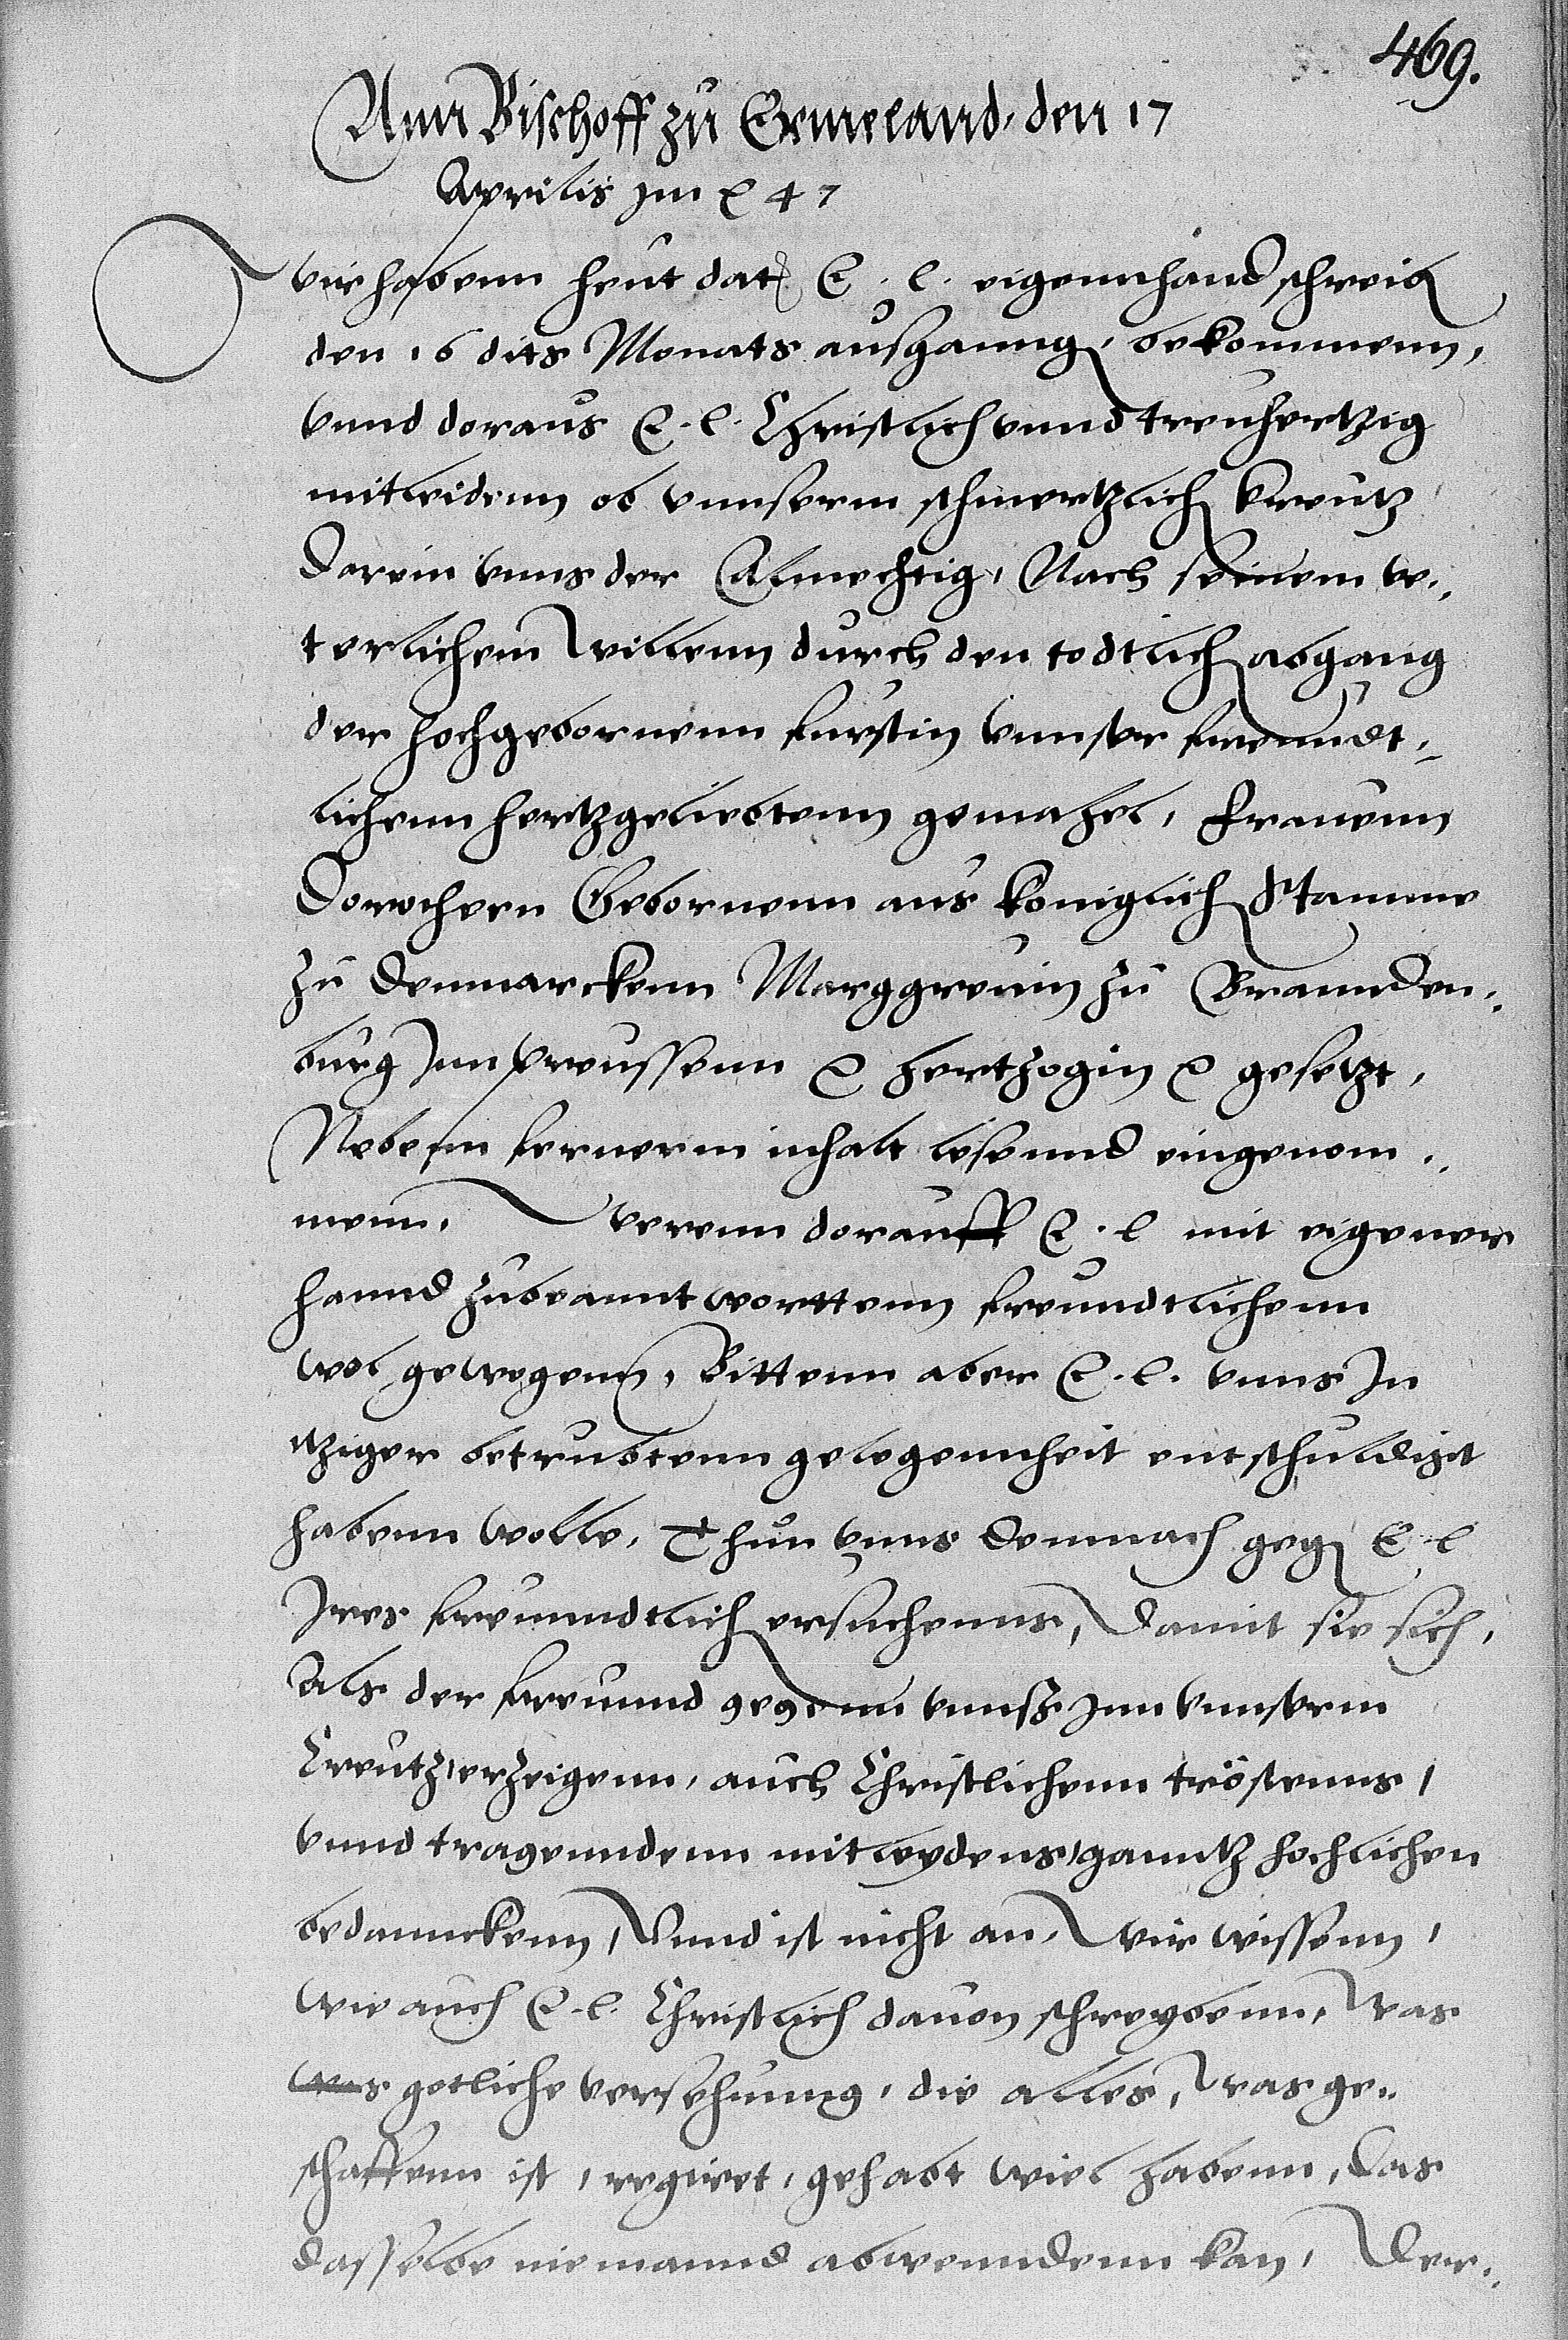 469.
Ann Bischoff zu Ermeland, den 17
Aprilis Im ꝛc 47
Wir habenn heut dat. E. l. eigennhand schreib
den 16 dits Monats ausganng, bekommenn,
vnnd doraus E. l. Christlich vnnd treuhertzig
mitleidenn ob vnnserm schmertzlich kreutz,
Darein vnns der Almechtig, Nach seinem ve-
terlichem willenn durch den todtlich abgang
der hochgebornenn furstin vnnser freundt-
lichenn hertzgeliebtenn gemahel, frauenn
Dorotheen Gebornenn aus koniglich Stamme
zu Denmarckenn Marggreuin zu Brannden-
burg Inn preussenn ꝛc hertzogin ꝛc gesetzt,
Nebenn fernerm inhalt lesennd eingenom-
menn. Weren dorauff E. l mit eigener
hannd zubeanntworttenn freundtlichenn
wol gewogenn, Bittenn aber E. l. vnns In
itziger betrubtenn gelegennheit entschuldigt
habenn wolle, Thun vnns demnach geg E. l
Ires freunndtlich ersuchenns, Damit sie sich,
Als der freunnd gegenn vnns Inn vnnserm
Creutz erzeigenn, auch Christlichenn tröstenns,
vnnd tragenndenn mitleydens, ganntz hochlichen
bedannckenn, Vnnd ist nicht an, Wir wissenn,
wie auch E. l. Christlich dauon schreybenn, Was
was gotliche versehunng, die alles, was ge-
schaffenn ist, regiret, gehabt wiel habenn, Das
dasselbe niemannd abwenndenn kan, Der-